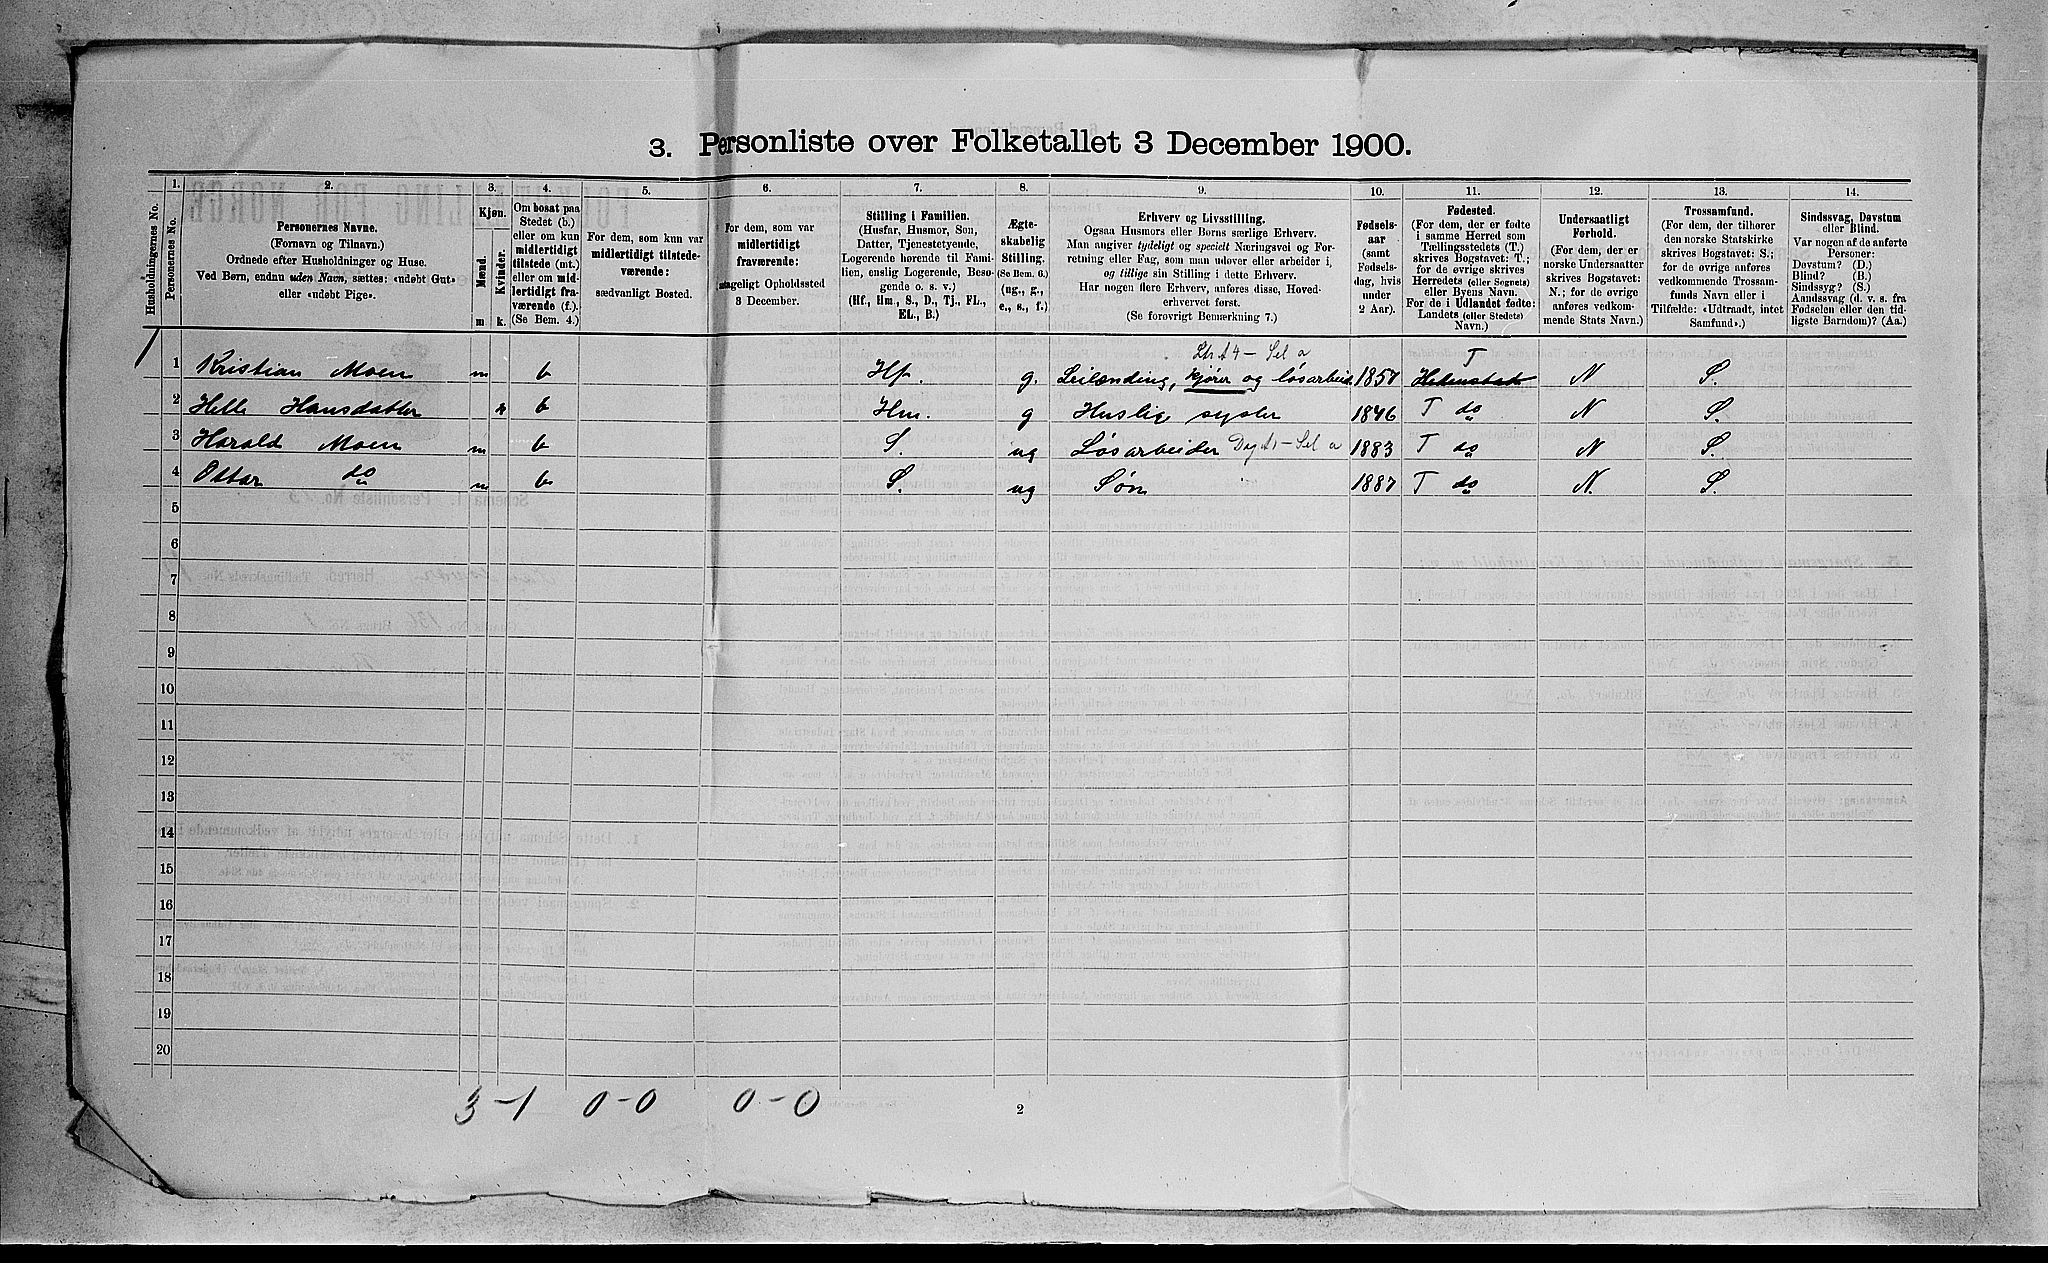 3. Personliste over Folketallet 3 December 1900.
1. 2. 3. 4. 5. 6. 7. 8. 9. 10. 11. 12. 13. 14.
Husholdningernes No.
Personernes No.
Personernes Navne.
(Fornavn og Tilnavn.)
Ordnede efter Husholdninger og Huse.
Ved Børn, endnu uden Navn, sættes: «udøbt Gut»
eller «udøbt Pige».
Kjøn.
Mænd.
Kvinder.
m k.
Om bosat paa
Stedet (b.)
eller om kun
midlertidigt
tilstede (mt.)
eller om mid-
lertidigt fra-
værende (f.).
(Se Bem. 4.)
For dem, som kun var
midlertidigt tilstede-
værende:
sædvanligt Bosted.
For dem, som var
midlertidigt
fraværende:
antageligt Opholdssted
3 December.
Stilling i Familien.
(Husfar, Husmor, Søn,
Datter, Tjenestetyende,
Logerende hørende til Fami-
lien, enslig Logerende, Besø-
gende o. s. v.)
(Hf., Hm., S., D., Tj., FL.,
EL., B.)
Ægte-
skabelig
Stilling.
(Se Bem. 6.)
(ug., g.,
e., s., f.)
Erhverv og Livsstilling.
Ogsaa Husmors eller Børns særlige Erhverv.
Man angiver tydeligt og specielt Næringsvei og For-
retning eller Fag, som man udøver eller arbeider i,
og tillige sin Stilling i dette Erhverv.
Har nogen flere Erhverv, anføres disse, Hoved-
erhvervet først.
(Se forøvrigt Bemærkning 7.)
Fødsels-
aar
(samt
Fødsels-
dag, hvis
under
2 Aar).
Fødested.
(For dem, der er fødte
i samme Herred som
Tællingsstedets (T.)
skrives Bogstavet: T.;
for de øvrige skrives
Herredets (eller Sognets)
eller Byens Navn.
For de i Udlandet fødte:
Landets (eller Stedets)
Navn.)
Undersaatligt
Forhold.
(For dem, der er
norske Undersaatter
skrives Bogstavet:
N.; for de øvrige
anføres vedkom-
mende Stats Navn.)
Trossamfund.
(For dem, der tilhører
den norske Statskirke
skrives Bogstavet: S.;
for de øvrige anføres
vedkommende Trossam-
funds Navn eller i
Tilfælde: «Udtraadt, intet
Samfund».)
Sindssvag, Døvstum
eller Blind.
Var nogen af de anførte
Personer:
Døvstum? (D.)
Blind? (B.)
Sindssyg? (S.)
Aandssvag (d. v. s. fra
Fødselen eller den tid-
ligste Barndom)? (Aa.)
Sel a T
1 1 Kristian Moen m b Hf. g. Leilænding, kjører og løsarbeid. 1857 Hedenstad N S.
2 Helle Hansdatter k b Hm. g Huslig sysler 1846 T do N S.
3 Harald Moen m b S. ug Løsarbeider Sel a 1883 T do N S.
4 Ottar do m b S. ug Søn 1887 T do N. S.
5
6
7
8
9
10
11
12
13
14
15
16
17
18
19
20
3-1 0-0 0-0 2